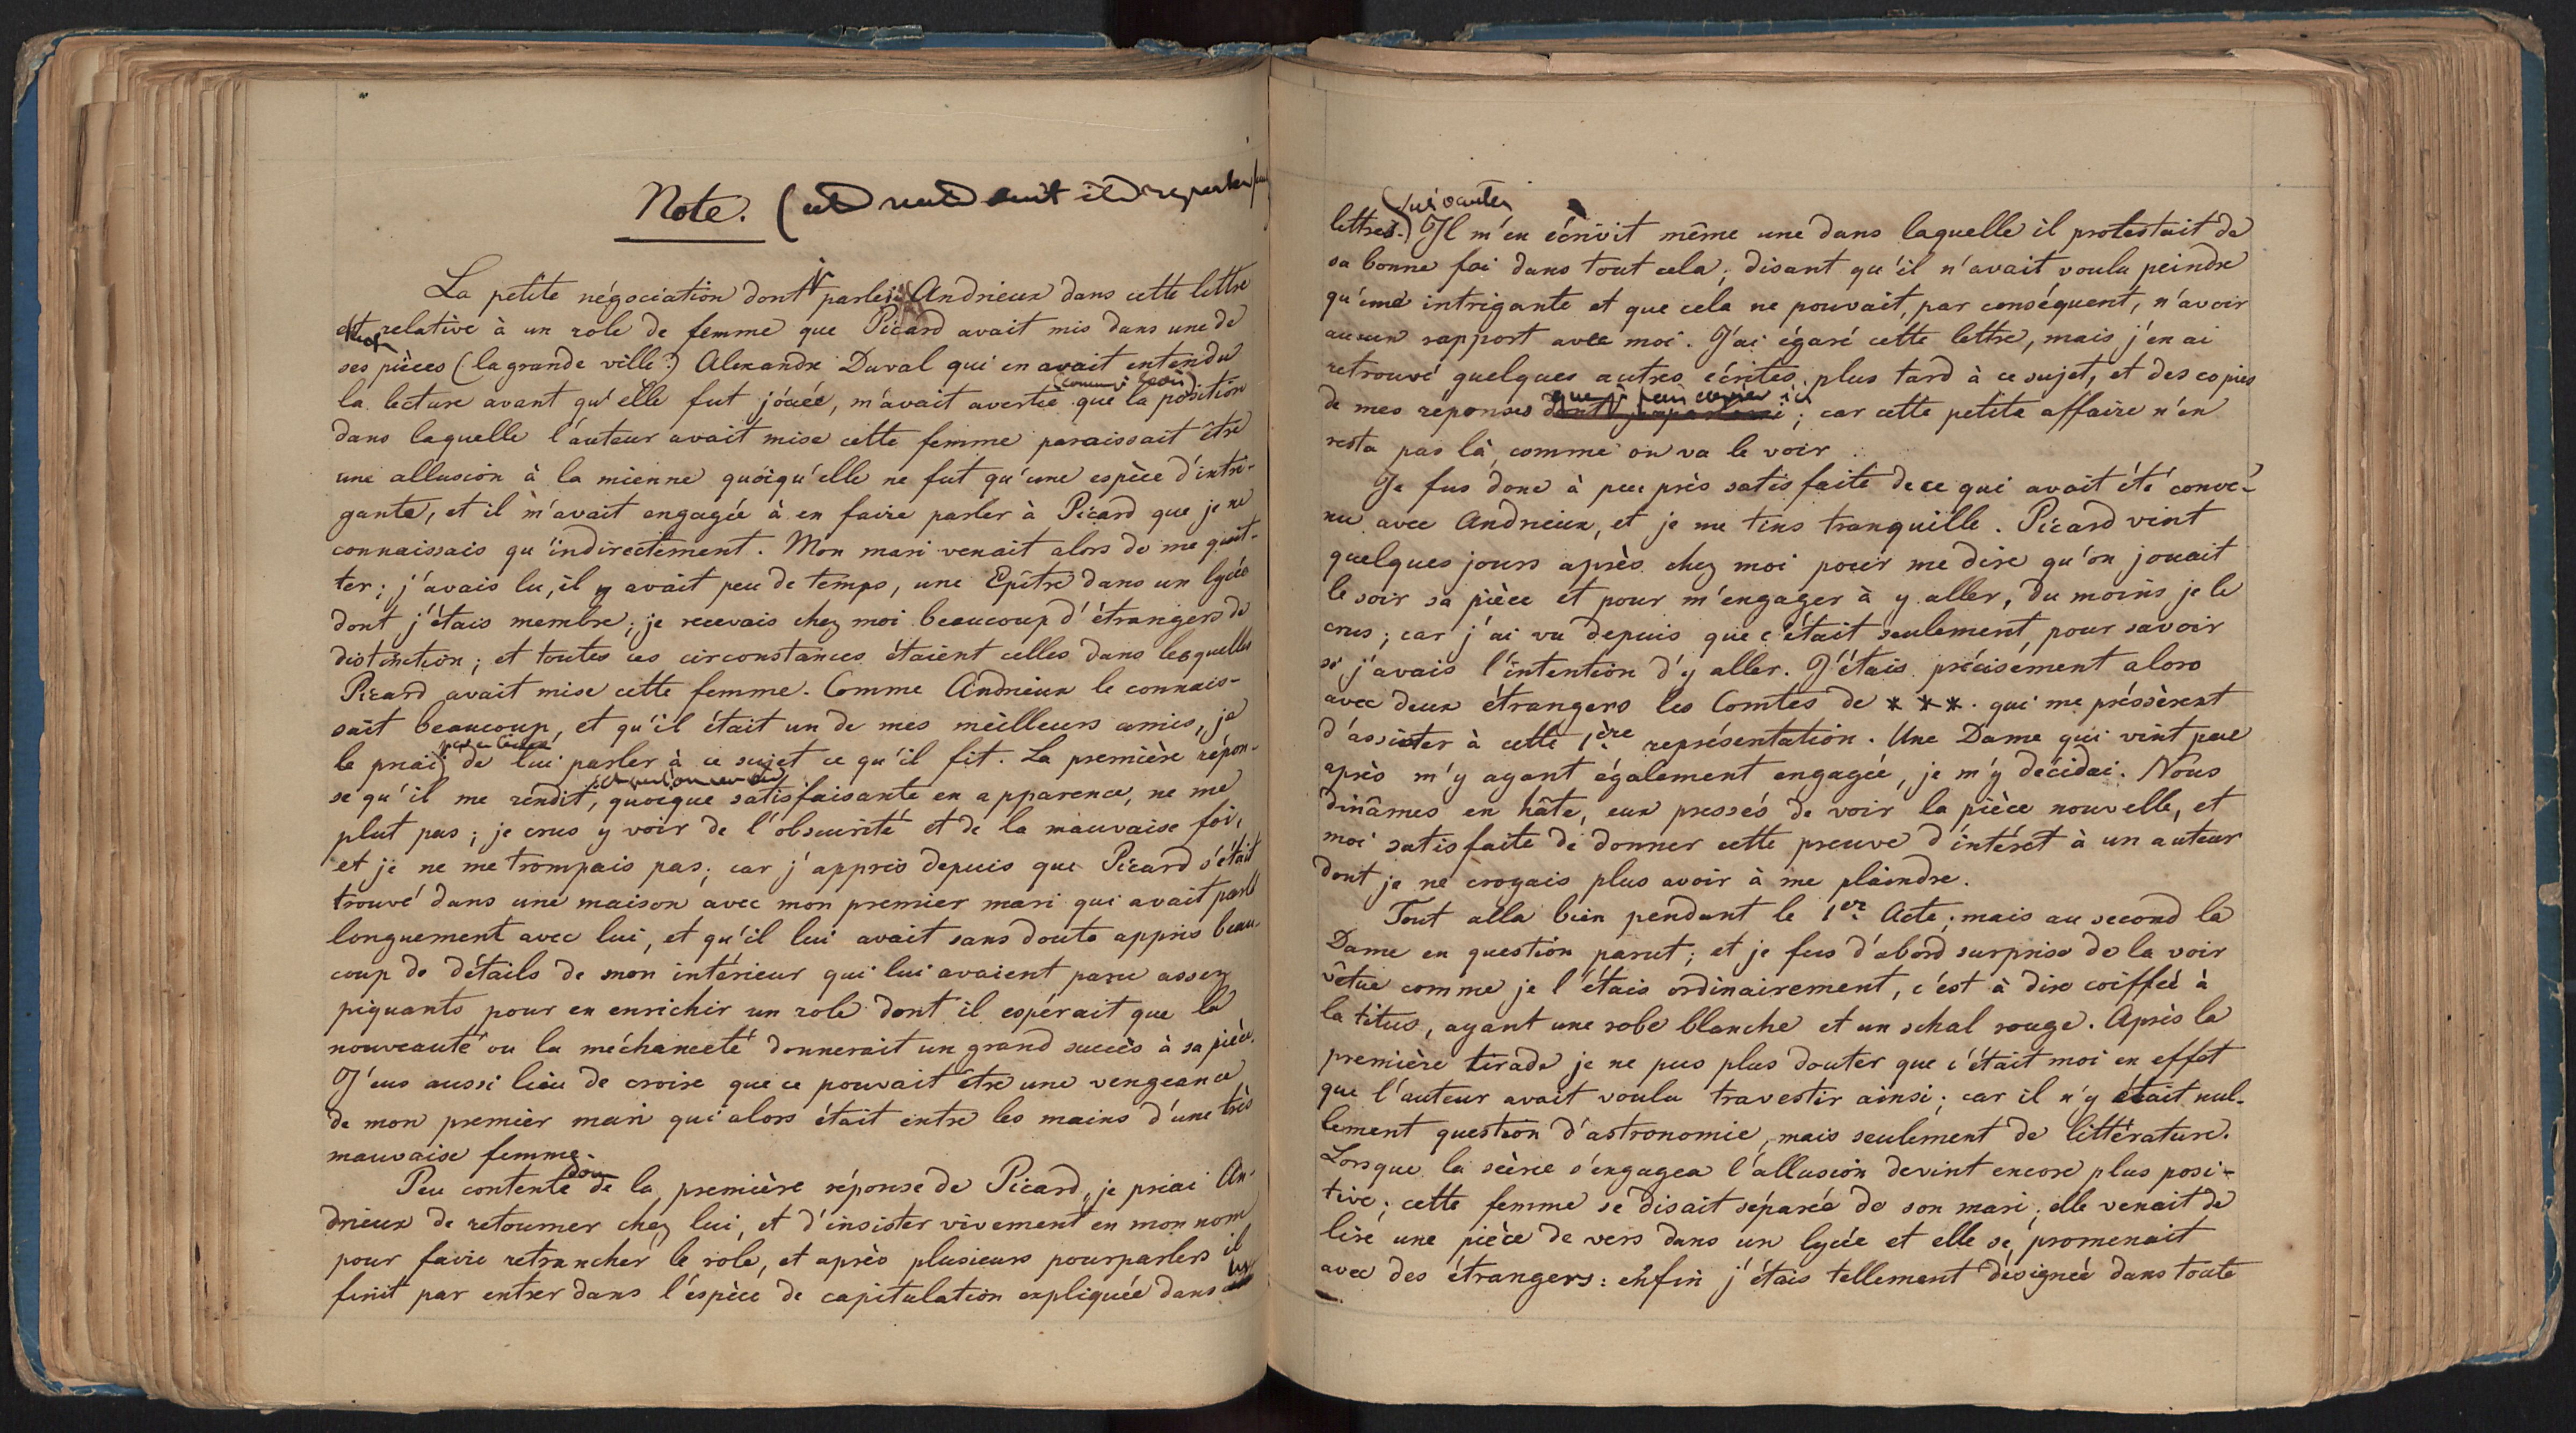 Note.
La petite négociation dont parle Andrieux dans cette lettre
est relative à un role de femme que Picard avait mis dans une de
ses pièces (la grande ville.) Alexandre Duval qui en avait entendu
la lecture avant qu'elle fut jouée, m'avait avertie que la position
dans laquelle l'auteur avait mise cette femme paraissait être
une allusion à la mienne quoiqu'elle ne fut qu'une espèce d'intri-
gante, et il m'avait engagée à en faire parler à Picard que je ne
connaissais qu'indirectement. Mon mari venait alors de me quit-
ter; j'avais lu, il y avait peu de temps, une Epître dans un lycée
dont j'étais membre; je recevais chez moi beaucoup d'étrangers de
distinction; et toutes ces circonstances étaient celles dans lesquelles
Picard avait mise cette femme. Comme Andrieux le connais-
sait beaucoup, et qu'il était un de mes meilleurs amis, je
le priai de lui parler à ce sujet ce qu'il fit. La première répon-
se qu'il me rendit, quoique satisfaisante en apparence, ne me
plut pas; je crus y voir de l'obscurité et de la mauvaise foi,
et je ne me trompais pas; car j'appris depuis que Picard s'était
trouvé dans une maison avec mon premier mari qui avait parlé
longuement avec lui, et qu'il lui avait sans doute appris beau-
coup de détails de mon intérieur qui lui avaient paru assez
piquants pour en enrichir un role dont il espérait que la
nouveauté ou la méchanceté donnerait un grand succès à sa pièce.
J'eus aussi lieu de croire que ce pouvait être une vengeance
de mon premier mari qui alors était entre les mains d'une très
mauvaise femme.
Peu contente donc de la première réponse de Picard, je priai An-
drieux de retourner chez lui, et d'insister vivement en mon nom
pour faire retrancher le role, et après plusieurs pourparlers il
finit par entrer dans l'espèce de capitulation expliquée dans les
suivantes
lettres.) Il m'en écrivit même une dans laquelle il protestait de
sa bonne foi dans tout cela; disant qu'il n'avait voulu peindre
qu'une intrigante et que cela ne pouvait, par conséquent, n'avoir
aucun rapport avec moi. J'ai égaré cette lettre, mais j'en ai
retrouvé quelques autres écrites plus tard à ce sujet, et des copies
de mes réponses; car cette petite affaire n'en
resta pas là, comme on va le voir.
Je fus donc à peu près satisfaite de ce qui avait été conve-
nu avec Andrieux, et je me tins tranquille. Picard vint
quelques jours après chez moi pour me dire qu'on jouait
le soir sa pièce et pour m'engager à y aller, du moins je le
crus; car j'ai vu depuis que c'était seulement pour savoir
si j'avais l'intention d'y aller. J'étais précisément alors
avec deux étrangers les Comtes de * * *. qui me pressèrent
d'assister à cette 1ère représentation. Une Dame qui vint peu
après m'y ayant également engagée, je m'y décidai. Nous
dinâmes en hâte, eux pressés de voir la pièce nouvelle, et
moi satisfaite de donner cette preuve d'intérêt à un auteur
dont je ne croyais plus avoir à me plaindre.
Tout alla bien pendant le 1er Acte; mais au second la
Dame en question parut; et je fus d'abord surprise de la voir
vêtue comme je l'étais ordinairement, c'est à dire coiffée à
la titus, ayant une robe blanche et un schal rouge. Après la
première tirade je ne pus plus douter que c'était moi en effet
que l'auteur avait voulu travestir ainsi; car il n'y était nul-
lement question d'astronomie, mais seulement de littérature.
Lorsque la scène s'engagea l'allusion devint encore plus posi-
tive; cette femme se disait séparée de son mari; elle venait de
lire une pièce de vers dans un lycée et elle se promenait
avec des étrangers: enfin j'étais tellement désignée dans toute